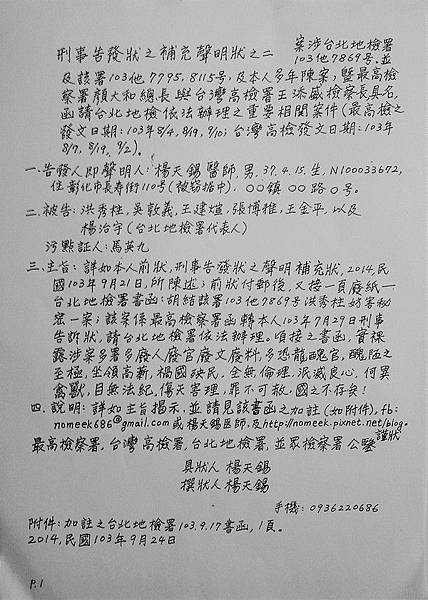 刑事告發狀之補充聲明狀之二
案涉台北地檢署
103他7869号.並
及該署103他7795, 8115号,及本人多年陳案;暨最高檢
察署顏大和總長與台灣高檢署王添盛檢察長具名,
函請台北地檢依法辦理之重要相關案件(最高檢之
發文日期:103年8/4, 8/19, 9/10; 台灣高檢發文日期:103年
8/7, 8/19, 9/2)。
一.告發人即聲明人:楊天錫醫師,男,37.4.15.生,N100033672,
住彰化市長寿街110号(被窃拮中). ○○鎮○○路○号。
二.被告:洪秀柱,吳敦義,王建煊,張博雅,王金平,以及
楊治宇(台北地檢署代表人)
污點証人:馬英九
三.主旨:詳如本人前狀,刑事告發狀之聲明補充狀,2014,民
國103年9月21日,所陳述;前狀付郵後,又接一頁廢紙—
台北地檢署書函:胡結該署103他7869号洪秀柱妨害秘
密一案;該案係最高檢察署函轉本人103年7月29日刑事
告訴狀,請台北地檢署依法辦理。頃接之書函,實裸
露涉案多署多廢人廢官廢文廢料,多恐龍醜官,醜陋之
至極,坐領高薪,禍國殃民,全無倫理,泯滅良心,何異
禽獸,目無法紀,傷天害理,罪不可赦,國之不存矣!
四.說明:詳如主旨揭示,並請見該書函之加註(如附件),fb:
nomeek686@gmail.com 或楊天錫医師,及http://nomeek.pixnet.net/blog。
謹狀
最高檢察署,台灣高檢署,台北地檢署,並眾檢察署公鑒
具狀人 楊天錫
撰狀人 楊天錫
手機:0936220686
附件:加註之台北地檢署103.9.17書函,1頁。
2014,民國103年9月24日
P.1